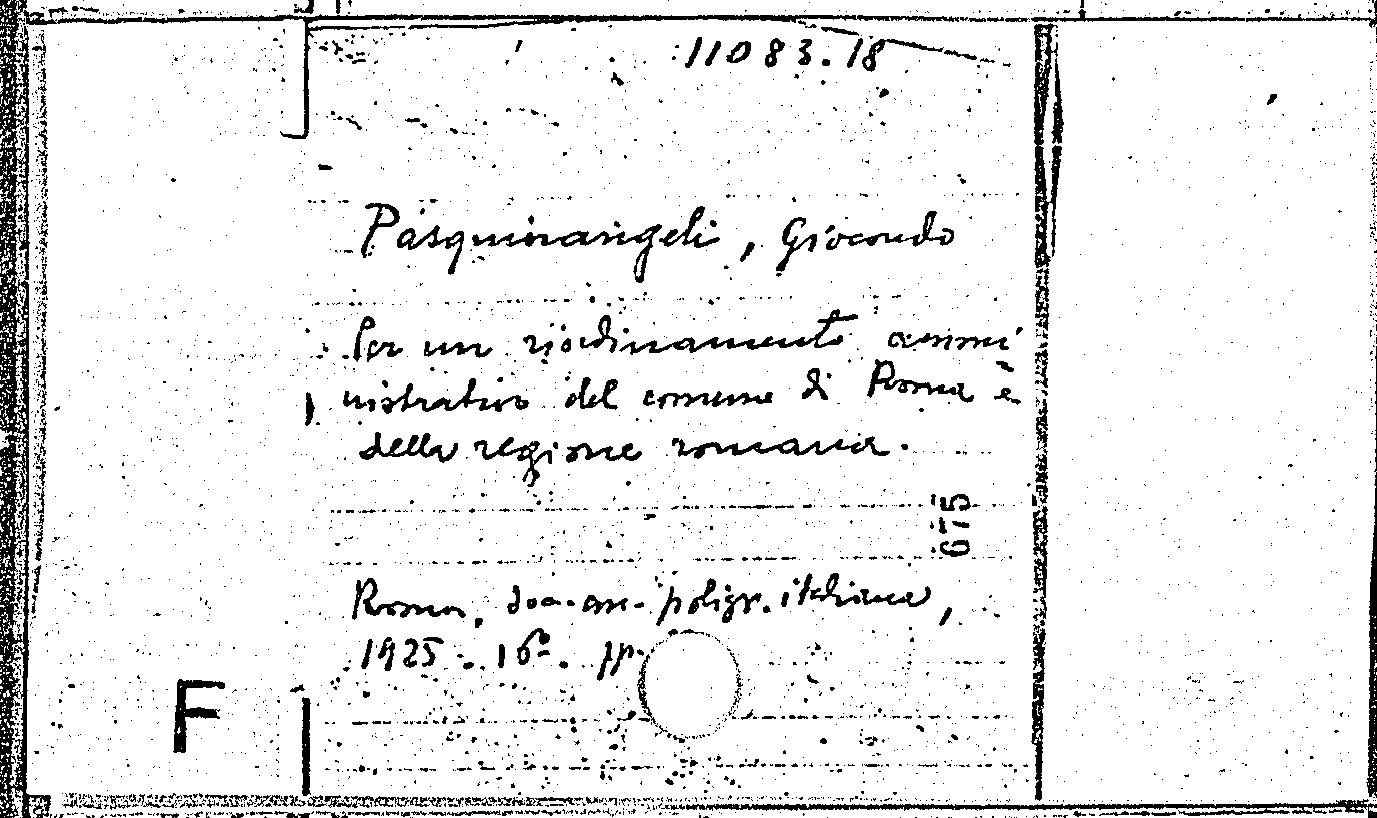 11083.18
Pasquinangeli, Giocondo
Per un riordinamento ammi
nistrativo del comune di Roma e
della regione romana.
675
Roma, soc. an. poligr. italiana,
1925. 16º. pp.
F